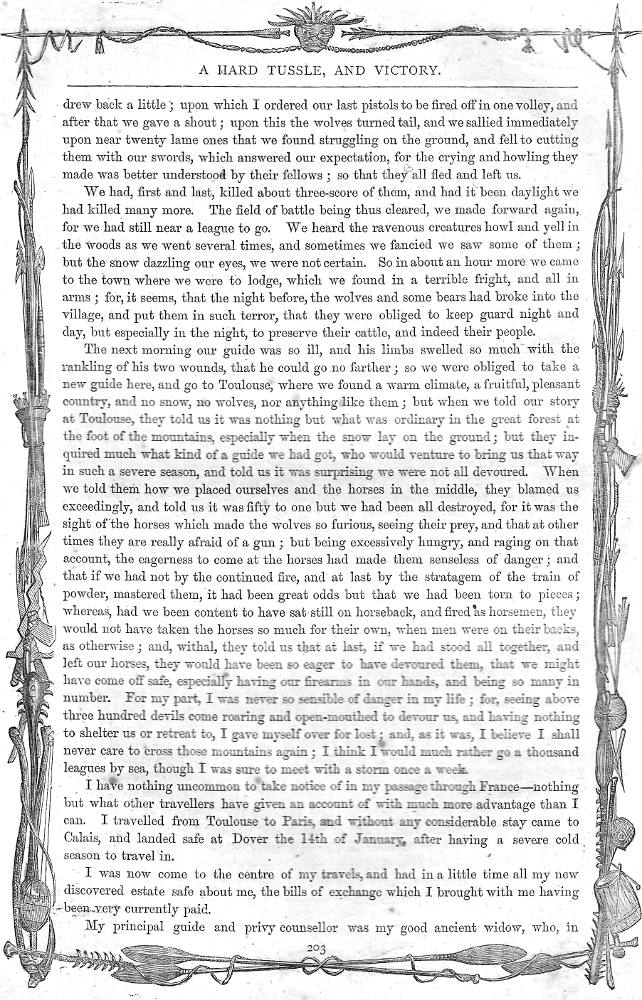 A HARD TUSSLE, AND VICTORY.
drew back a little ; upon which I ordered our last pistols to be fired off in one volley, and
after that we gave a shout ; upon this the wolves turned tail, and we sallied immediately
upon near twenty lame ones that we found struggling on the ground, and fell to cutting
them with our swords, which answered our expectation, for the crying and howling they
made was better understood by their fellows ; so that they all fled and left us.
We had, first and last, killed about three-score of them, and had it been daylight we
had killed many more. The field of battle being thus cleared, we made forward again,
for we had still near a league to go. We heard the ravenous creatures howl and yell in
the woods as we went several times, and sometimes we fancied we saw some of them ;
but the snow dazzling our eyes, we were not certain. So in about an hour more we came
to the town where we were to lodge, which we found in a terrible fright, and all in
arms ; for, it seems, that the night before, the wolves and some bears had broke into the
village, and put them in such terror, that they were obliged to keep guard night and
day, but especially in the night, to preserve their cattle, and indeed their people.
The next morning our guide was so ill, and his limbs swelled so much with the
rankling of his two wounds, that he could go no farther ; so we were obliged to take a
new guide here, and go to Toulouse, where we found a warm climate, a fruitful, pleasant
country, and no snow, no wolves, nor anything like them ; but when we told our story
at Toulouse, they told us it was nothing but what was ordinary in the great forest at
the foot of the mountains, especially when the snow lay on the ground ; but they in-
quired much what kind of a guide we had got, who would venture to bring us that way
in such a severe season, and told us it was surprising we were not all devoured. When
we told them how we placed ourselves and the horses in the middle, they blamed us
exceedingly, and told us it was fifty to one but we had been all destroyed, for it was the
sight of the horses which made the wolves so furious, seeing their prey, and that at other
times they are really afraid of a gun ; but being excessively hungry, and raging on that
account, the eagerness to come at the horses had made them senseless of danger ; and
that if we had not by the continued fire, and at last by the stratagem of the train of
powder, mastered them, it had been great odds but that we had been torn to pieces ;
whereas, had we been content to have sat still on horseback, and fired as horsemen, they
would not have taken the horses so much for their own, when men were on their backs,
as otherwise ; and, withal, they told us that at last, if we had stood all together, and
left our horses, they would have been so eager to have devoured them, that we might
have come off safe, especially having our firearms in our hands, and being so many in
number. For my part, I was never so sensible of danger in my life ; for, seeing above
three hundred devils come roaring and open-mouthed to devour us, and having nothing
to shelter us or retreat to, I gave myself over for lost ; and, as it was, I believe I shall
never care to cross those mountains again ; I think I would much rather go a thousand
leagues by sea, though I was sure to meet with a storm once a week.
I have nothing uncommon to take notice of in my passage through France—nothing
but what other travellers have given an account of with much more advantage than I
can. I travelled from Toulouse to Paris, and without any considerable stay came to
Calais, and landed safe at Dover the 14th of January, after having a severe cold
season to travel in.
I was now come to the centre of my travels, and had in a little time all my new
discovered estate safe about me, the bills of exchange which I brought with me having
been very currently paid.
My principal guide and privy counsellor was my good ancient widow, who, in
203